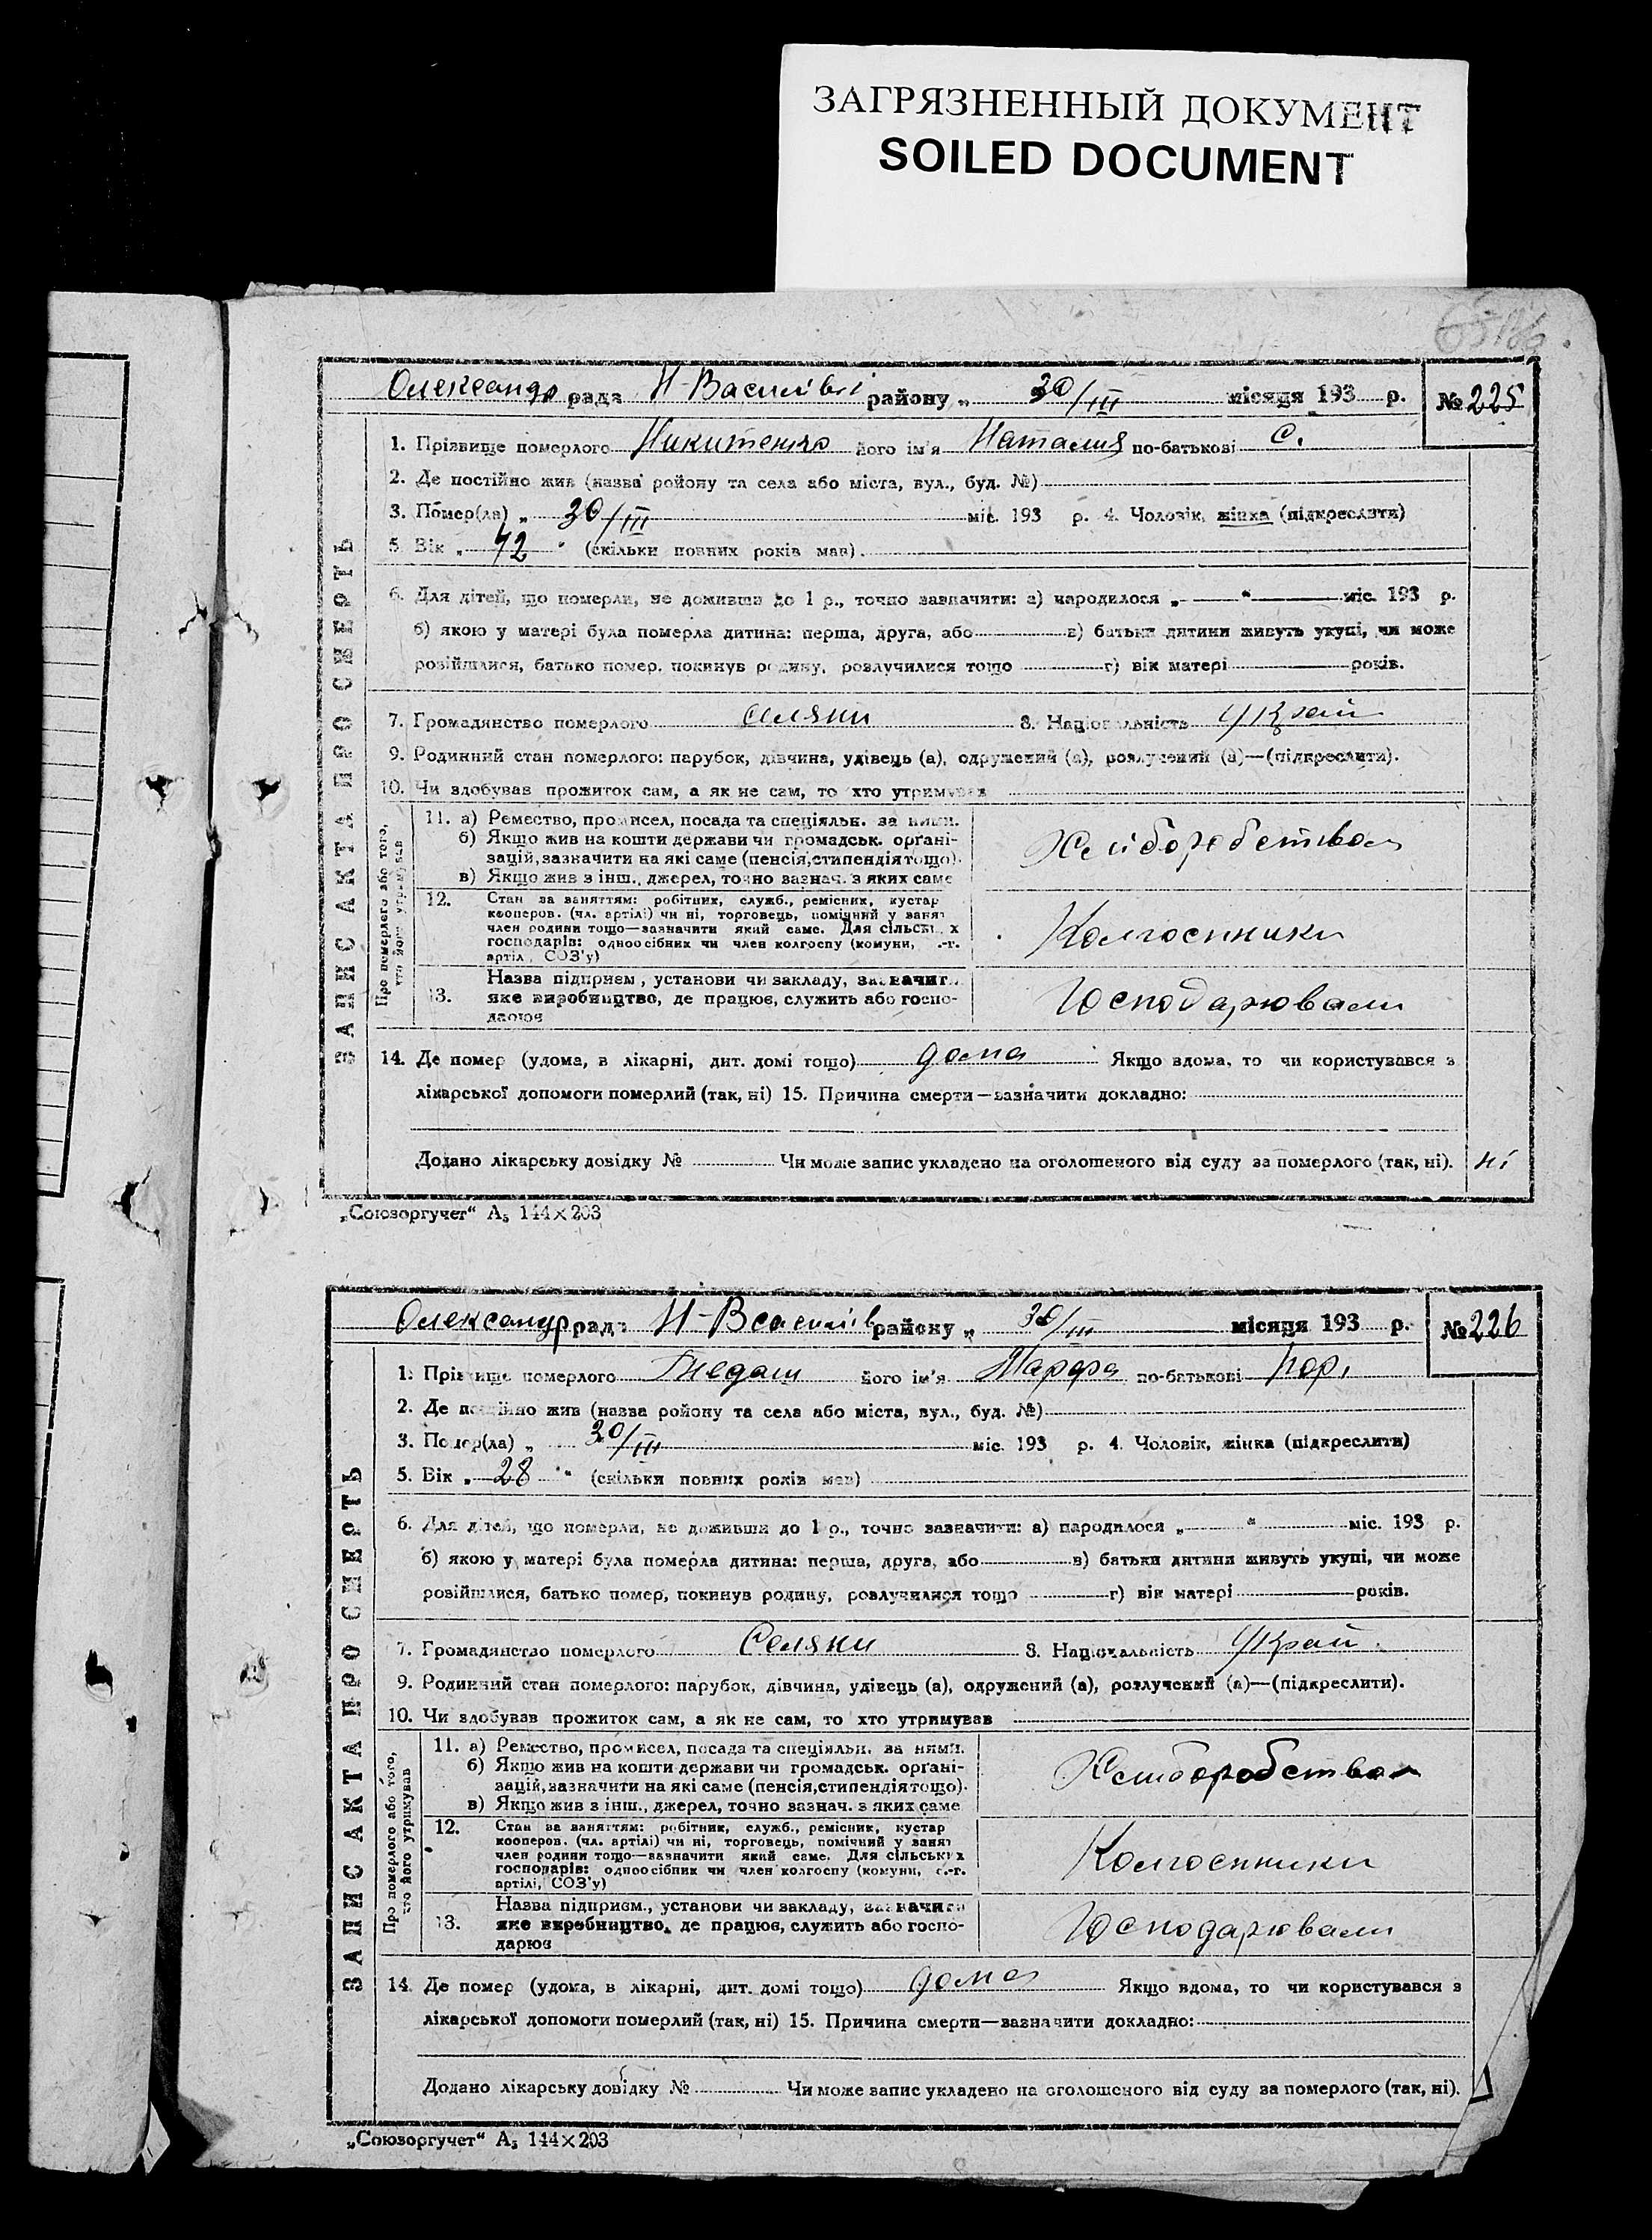 ЗАГРЯЗНЕННЫЙ ДОКУМЕНТ
SOILED DOCUMENT
Олександр рада Н-Василівкі району „ 30/III місяця 193 р. № 225
ЗАПИС АКТА ПРО СМЕРТЬ
1. Прізвище померлого Никитенко його ім'я Наталия по-батькові С.
2. Де постійно жив (назва ройону та села або міста, вул., буд. №)
3. Помер(ла) „ 30/III міс. 193 р. 4. Чоловік, жінка (підкреслити)
5. Вік „ 42 " (скільки повних років мав)
6. Для дітей, що померли, не доживши до 1 р., точно зазначити: а) народилося „ — " — міс. 193 р.
б) якою у матері була померла дитина: перша, друга, або — в) батьки дитини живуть укупі, чи може
розійшлися, батько помер, покинув родину, розлучилися тощо — г) вік матері — років.
7. Громадянство померлого селяни 8. Національність Україн
9. Родинний стан померлого: парубок, дівчина, удівець (а), одружений (а), розлучений (а)—(підкреслити).
10. Чи здобував прожиток сам, а як не сам, то хто утримував
Про померлего або того, хто його утримував
11. а) Ремество, промисел, посада та спеціяльн. за ними.
б) Якщо жив на кошти держави чи громадськ. органі-
зацій, зазначити на які саме (пенсія, стипендія тощо).
в) Якщо жив з інш., джерел, точно зазнач. з яких саме
Хліборобством
12. Стан за заняттям: робітник, служб., ремісник, кустар
кооперов. (чл. артілі) чи ні, торговець, помічний у занят
член родини тощо—зазначити який саме. Для сільських
господарів: одноосібник чи член колгоспу (комуни, с.-г.
артілі, СОЗ'у)
Колгоспники
13. Назва підприєм., установи чи закладу, зазначити
яке виробництво, де працює, служить або госпо-
дарює
Господарювали
14. Де помер (удома, в лікарні, дит. домі тощо) дома Якщо вдома, то чи користувався з
лікарської допомоги померлий (так, ні) 15. Причина смерти—зазначити докладно:
Додано лікарську довідку № Чи може запис укладено на оголошеного від суду за померлого (так, ні). ні
„Союзоргучет" А₅ 144×203
Олександр рада Н-Василів району „ 30/III місяця 193 р. № 226
ЗАПИС АКТА ПРО СМЕРТЬ
1. Прізвище померлого Гнедаш його ім'я Марфа по-батькові
2. Де постійно жив (назва ройону та села або міста, вул., буд. №)
3. Помер(ла) „ 30/III міс. 193 р. 4. Чоловік, жінка (підкреслити)
5. Вік „ 28 " (скільки повних років мав)
6. Для дітей, що померли, не доживши до 1 р., точно зазначити: а) народилося „ — " — міс. 193 р.
б) якою у матері була померла дитина: перша, друга, або — в) батьки дитини живуть укупі, чи може
розійшлися, батько помер, покинув родину, розлучилися тощо — г) вік матері — років.
7. Громадянство померлого Селяни 8. Національність Україн
9. Родинний стан померлого: парубок, дівчина, удівець (а), одружений (а), розлучений (а)—(підкреслити).
10. Чи здобував прожиток сам, а як не сам, то хто утримував
Про померлого або того, хто його утримував
11. а) Ремество, промисел, посада та спеціяльн. за ними.
б) Якщо жив на кошти держави чи громадськ. органі-
зацій, зазначити на які саме (пенсія, стипендія тощо).
в) Якщо жив з інш., джерел, точно зазнач. з яких саме
Хліборобством
12. Стан за заняттям: робітник, служб., ремісник, кустар
кооперов. (чл. артілі) чи ні, торговець, помічний у занят
член родини тощо—зазначити який саме. Для сільських
господарів: одноосібник чи член колгоспу (комуни, с.-г.
артілі, СОЗ'у)
Колгоспники
13. Назва підприєм., установи чи закладу, зазначити
яке виробництво, де працює, служить або госпо-
дарює
Господарювали
14. Де помер (удома, в лікарні, дит. домі тощо) дома Якщо вдома, то чи користувався з
лікарської допомоги померлий (так, ні) 15. Причина смерти—зазначити докладно:
Додано лікарську довідку № Чи може запис укладено на оголошеного від суду за померлого (так, ні).
„Союзоргучет" А₅ 144×203